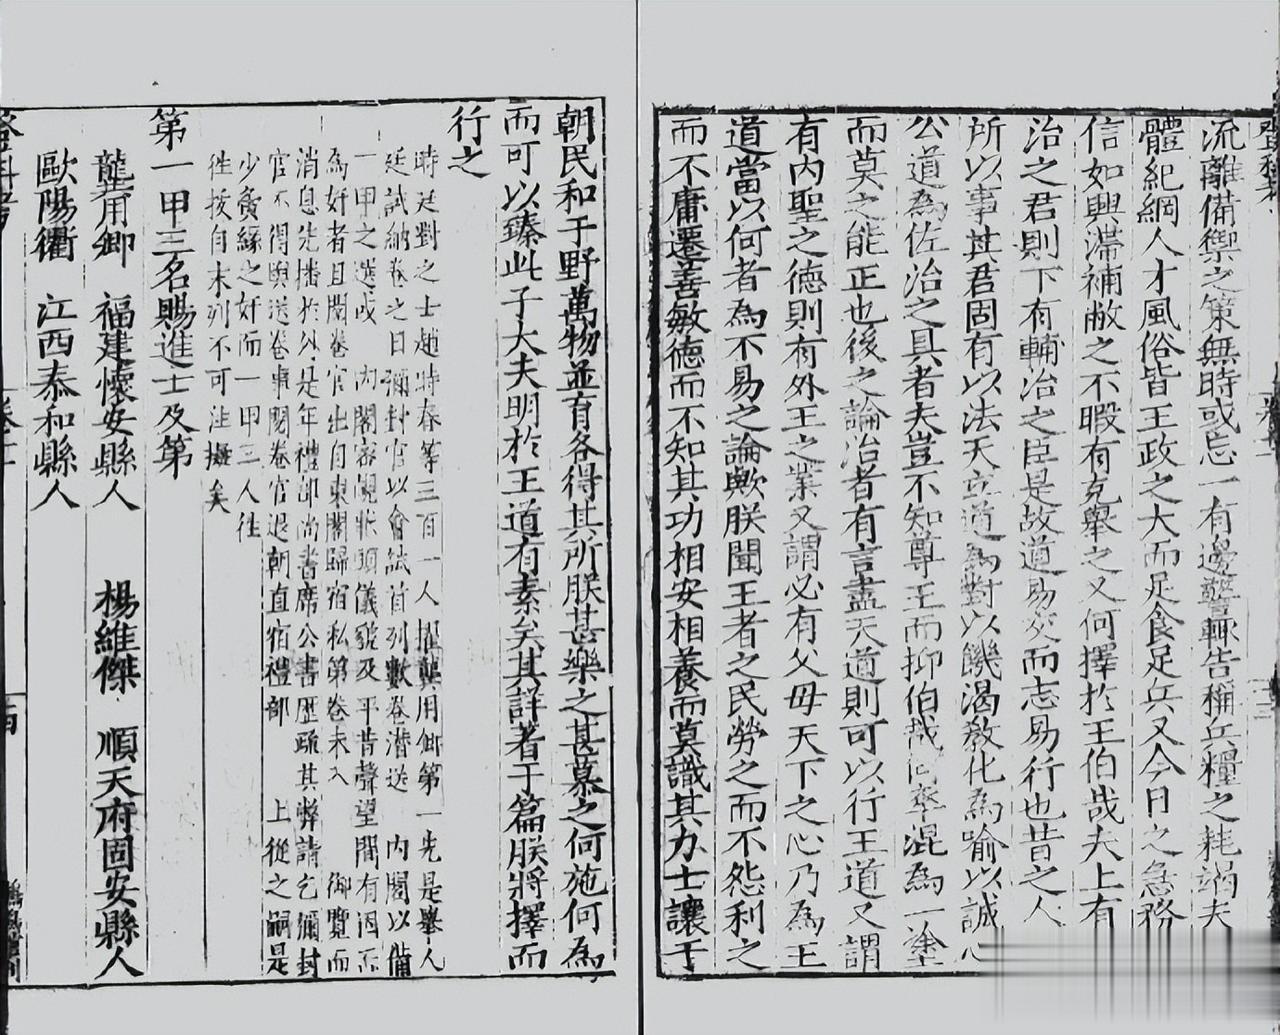 流離備禦之策無時或忘一有邊警輒告稱兵糧之耗夫
體紀綱人才風俗皆王政之大而足食足兵又今日之急務
信如興滯補敝之不暇有克舉之又何擇於王伯哉夫上有
治之君則下有輔治之臣是故道易交而志易行也昔之人
所以事其君固有以法天立道為對以饑渴教化為喻以誠心
公道為佐治之具者夫豈不知尊王而抑伯哉何率混為一塗
而莫之能正也後之論治者有言盡天道則可以行王道又謂
有內聖之德則有外王之業又謂必有父母天下之心乃為王
道當以何者為不易之論歟朕聞王者之民勞之而不怨利之
而不庸遷善敏德而不知其功相安相養而莫識其力士讓于
朝民和于野萬物並育各得其所朕甚樂之甚慕之何施何為
而可以臻此子大夫明於王道有素矣其詳著于篇朕將擇而
行之
時廷對之士趙時春等三百一人擢龔用卿第一先是舉人
廷試納卷之日彌封官以會試首列數卷潛送 內閣以備
一甲之選或 內閣密覘狀頭儀貌及平昔聲望間有因而
為奸者且閱卷官出自東閣歸宿私第卷未入 御覽而
消息先播於外是年禮部尚書席公書歷疏其弊請乞彌封
官不得與送卷事閱卷官退朝直宿禮部 上從之嗣是
少夤緣之奸而一甲三人往
往拔自末列不可注擬矣
第一甲三名賜進士及第
龔用卿 福建懷安縣人 楊維傑 順天府固安縣人
歐陽衢 江西泰和縣人
登科考